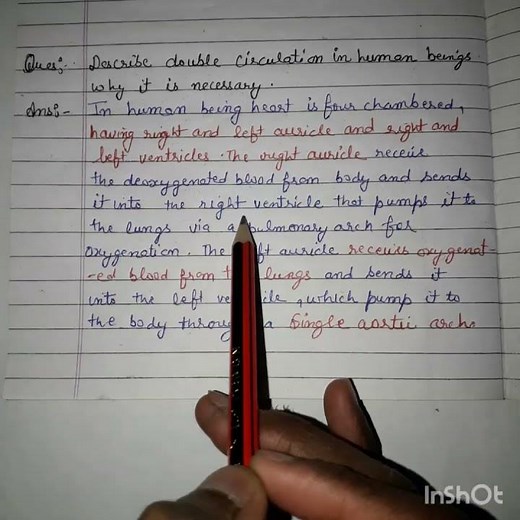 Ques:- Describe double circulation in human beings.
why it is necessary.
Ans:- In human being heart is four chambered,
having right and left auricle and right and
left ventricles. The right auricle receive
the deoxygenated blood from body and sends
it into the right ventricle that pumps it to
the lungs via a pulmonary arch for
oxygenation. The left auricle receives oxygenat-
-ed blood from the lungs and sends it
into the left ventricle, which pump it to
the body through a single aortic arch.
InShOt